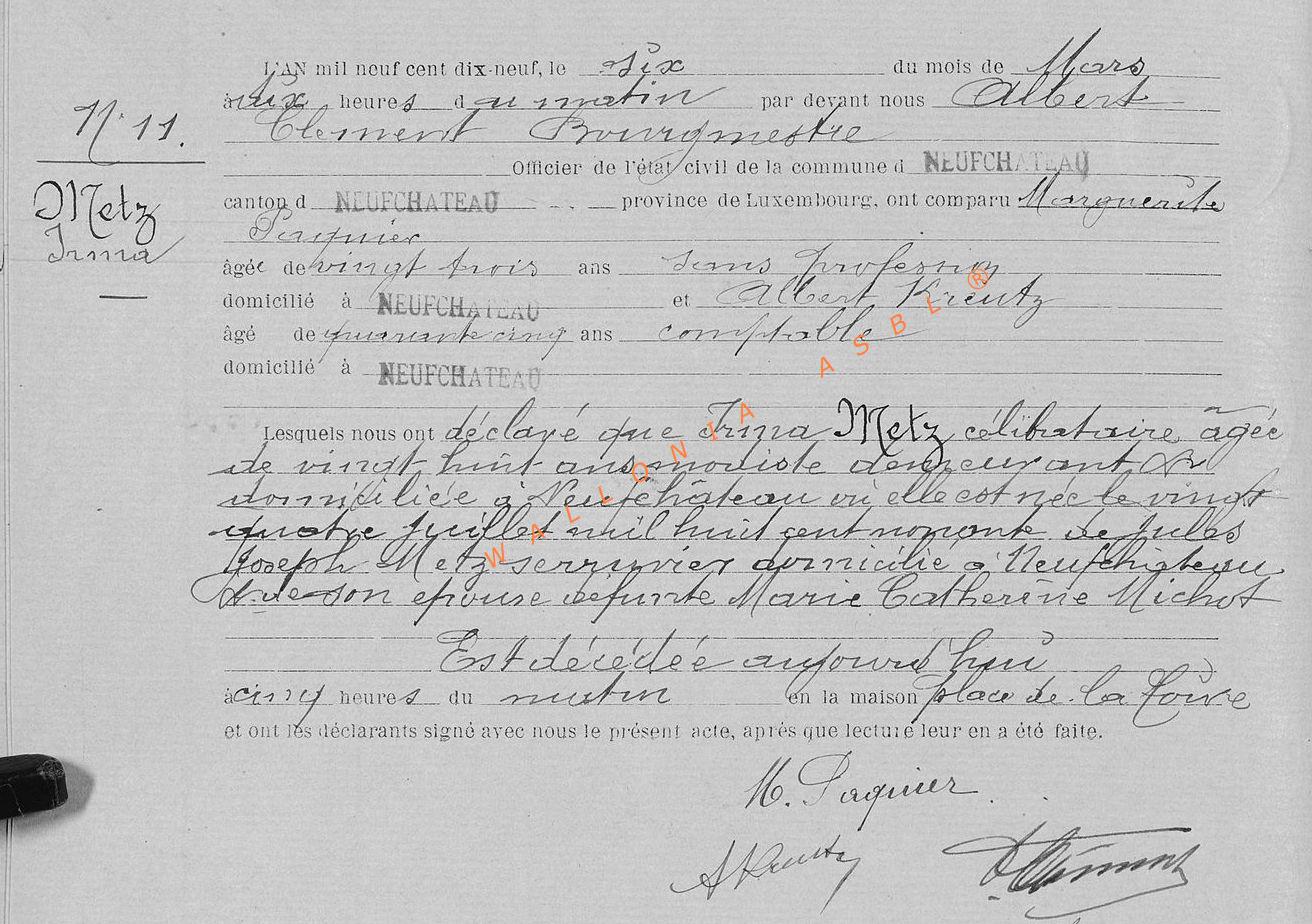 L'AN mil neuf cent dix-neuf, le six du mois de Mars
à dix heures du matin par devant nous Albert
N° 11.
Clement Bourgmestre
Officier de l'état civil de la commune d NEUFCHATEAU
Metz
Irma
canton d NEUFCHATEAU province de Luxembourg, ont comparu Marguerite
Paquier
âgée de vingt trois ans sans profession
domicilié à NEUFCHATEAU et Albert Kreutz
âgé de quarante cinq ans comptable
domicilié à NEUFCHATEAU
Lesquels nous ont déclaré que Irma Metz célibataire âgée
de vingt huit ans modiste demeurant &
domiciliée à Neufchâteau où elle est née le vingt
quatre juillet mil huit cent nonante de Jules
Joseph Metz serrurier domicilié à Neufchâteau
& de son épouse défunte Marie Catherine Michot
Est décédée aujourd'hui
à cinq heures du matin en la maison place de la Foire
et ont les déclarants signé avec nous le présent acte, après que lecture leur en a été faite.
M. Paquier
AKreutz
AClément
WALLONIA ASBL ®